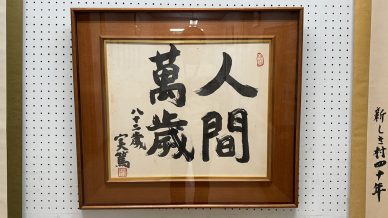 人間
萬歳
八十二歳
実篤
新しき村四十年